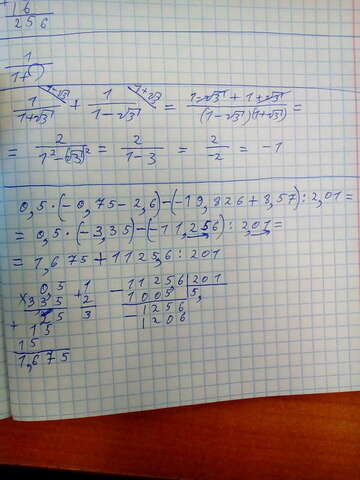 16
256
1
1+
1/(1+√3) + 1/(1-√3) = (1-√3+1+√3)/((1-√3)(1+√3)) =
= 2/(1²-(√3)²) = 2/(1-3) = 2/-2 = -1
0,5·(-0,75-2,6)-(-19,826+3,57):2,01=
= 0,5·(-3,35)-(-11,256):2,01=
= 1,675+1125,6:201
0,5
×3,35
25
+15
15
1,675
1
+2
3
-11256|201
1005|5,
-1256
1206